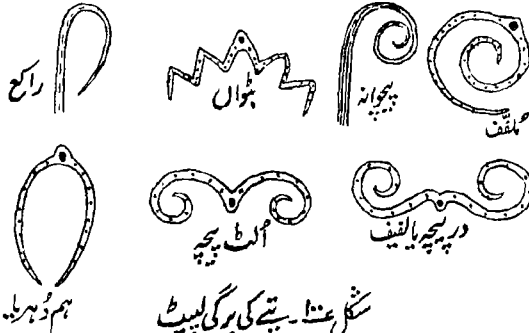 راکع
بٹواں
پیچوانہ
مُلفّف
ہم دُہریا
اُلٹ پیچہ
در پیچہ یا لفیف
شکل ۱۰۰۔ پتے کی برگی لپیٹ